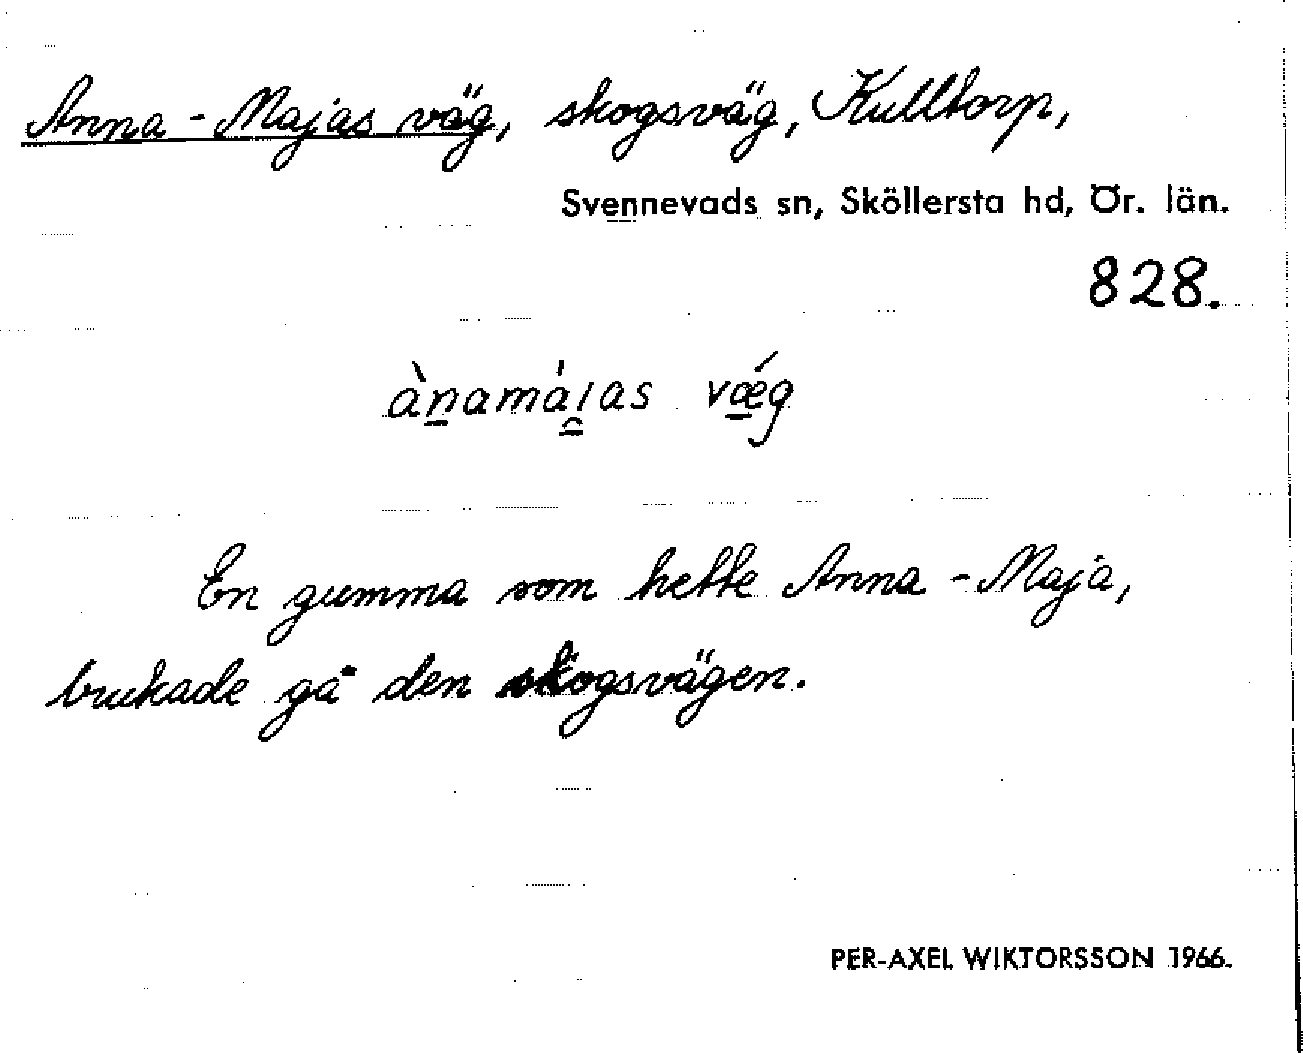 Anna-Majas väg, skogsväg, Kulltorp,
Svennevads sn, Sköllersta hd, Ör. län.
828.
ànamáıas vǽg
En gumma som hette Anna-Maja,
brukade gå den skogsvägen.
PER-AXEL WIKTORSSON 1966.